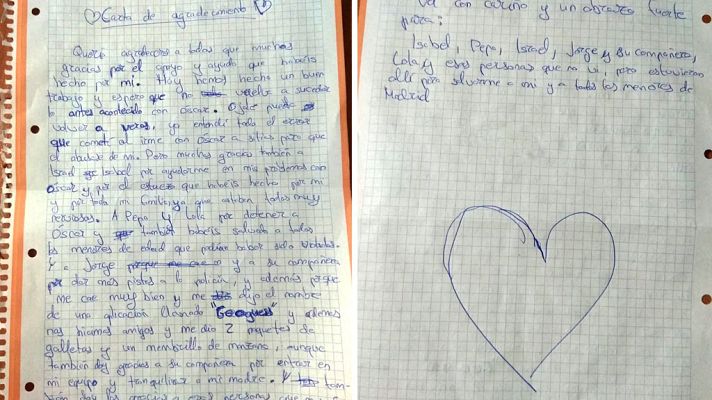 Carta de agradecimiento
Quería agradeceros a todos que muchas
gracias por el apoyo y ayuda que habéis
hecho por mí. Hoy hemos hecho un buen
trabajo y espero que no vuelva a suceder
lo antes acontecido con Óscar. Ojalá pueda
volver a veros, yo entendí todo el error
que cometí al irme con Óscar a sitios para que
él abuse de mí. Pero muchas gracias también a
Israel Isabel por ayudarme en mis problemas con
Óscar y por el esfuerzo que habéis hecho por mí
y por toda mi familia, ya que estaban todos muy
nerviosos. A Pepa y Lola por detener a
Óscar y también habéis salvado a todos
los menores de edad que podían haber sido violados.
Y a Jorge y a su compañera
por dar más pistas a la policía, y además porque
me cae muy bien y me dijo el nombre
de una aplicación llamada "Geoguess" y además
nos hicimos amigos y me dio 2 paquetes de
galletas y un membrillo de manzana, aunque
también doy gracias a su compañera por entrar en
mi equipo y tranquilizar a mi madre. Y tam-
bién doy las gracias a esas personas que
Va con cariño y un abrazo fuerte
para:
Isabel, Pepa, Israel, Jorge y su compañera,
Lola y esas personas que no vi, pero estuvieron
allí para salvarme a mí y a todos los menores de
Madrid